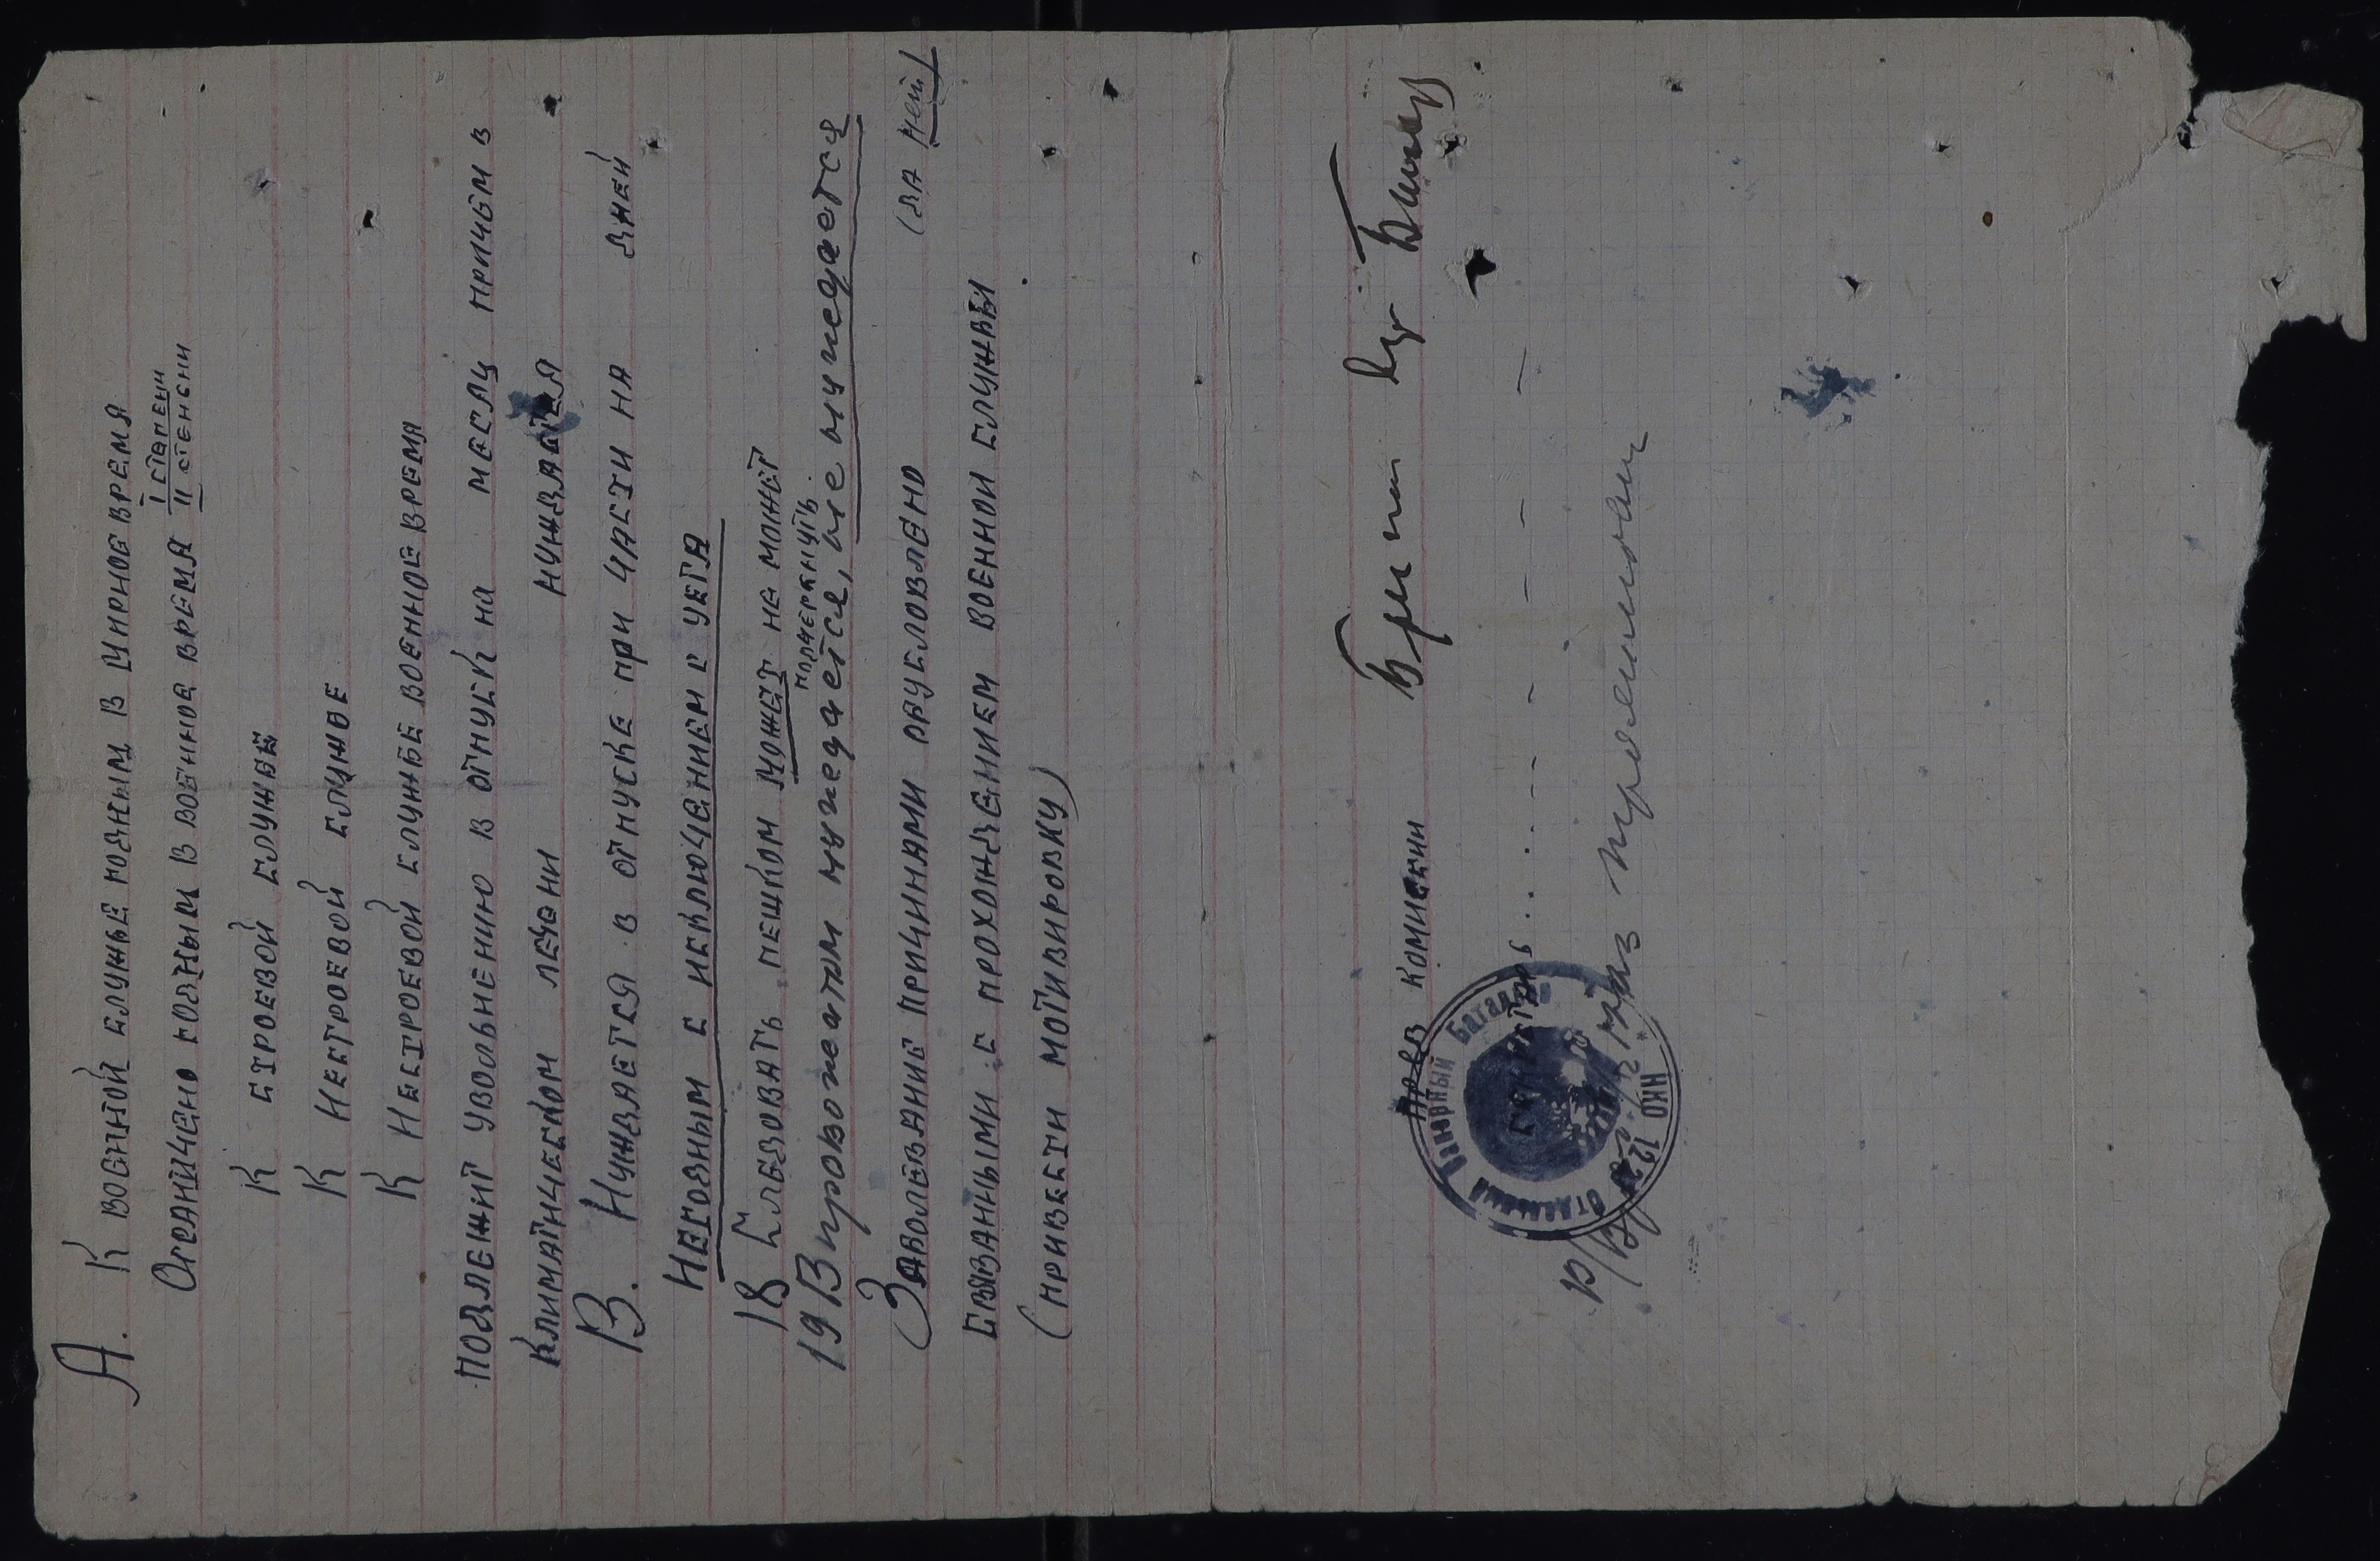 А. К военной службе годным в мирное время
Ограничено годным в военное время I степени
II степени
К строевой службе
К нестроевой службе
К нестроевой службе военное время
Подлежит увольнению в отпуск на месяц причем в
климатическом лечени нуждается
В. Нуждается в отпуске при части на дней
Негодным с исключением с учета
18 Следовать пешком может не может
подчеркнуть
19 В провожатом нуждается, не нуждается
Заболевание причинами обусловлено (да нет)
связанными с прохождением военной службы
(привести мотивировку)
Пред комиссии
Секретарь
Отдельный Банный Батальон
НКО